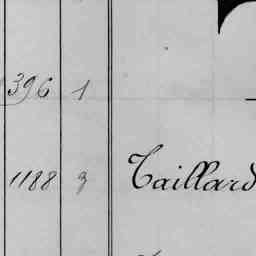 396 1
1188 3 Taillard